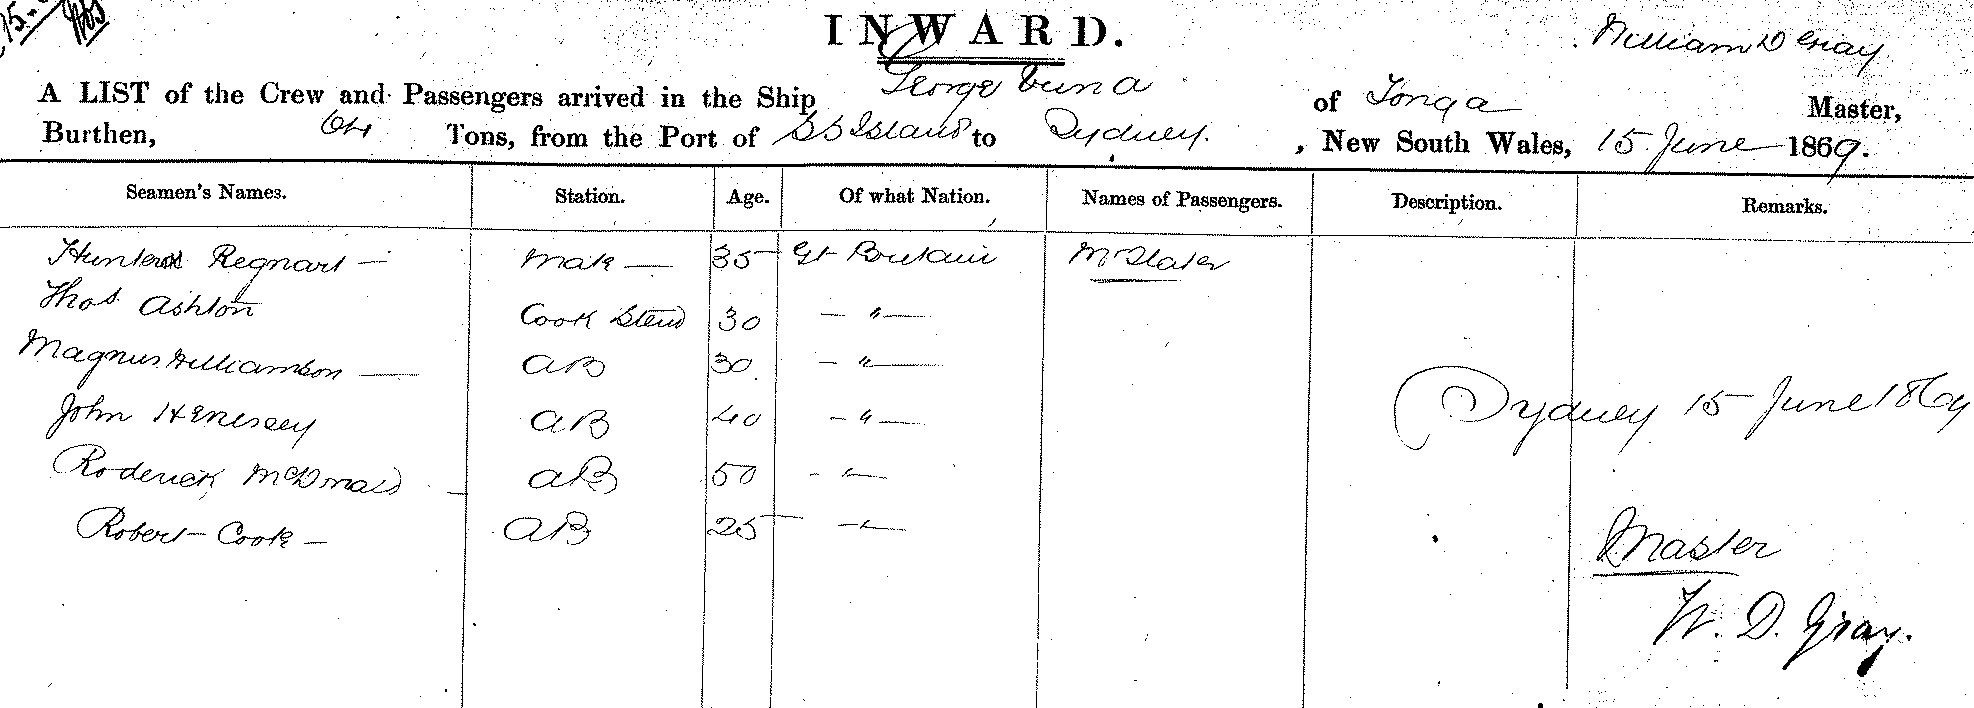 15.
INWARD.
William D Gray
A LIST of the Crew and Passengers arrived in the Ship George Tuna of Tonga Master,
Burthen, Tons, from the Port of SS Island to Sydney. , New South Wales, 15 June 1869.
Seamen's Names. Station. Age. Of what Nation. Names of Passengers. Description. Remarks.
Hunter Regnart — Mate — 35 Gt Britain Mr Slater
Thos Ashton Cook Stewd 30 — " —
Magnus Williamson — AB 30 — " —
John Henessey AB 40 — " —
Sydney 15 June 1869
Roderick McDonald — AB 50 — " —
Robert Cook — AB 25 — " —
Master
W. D. Gray.